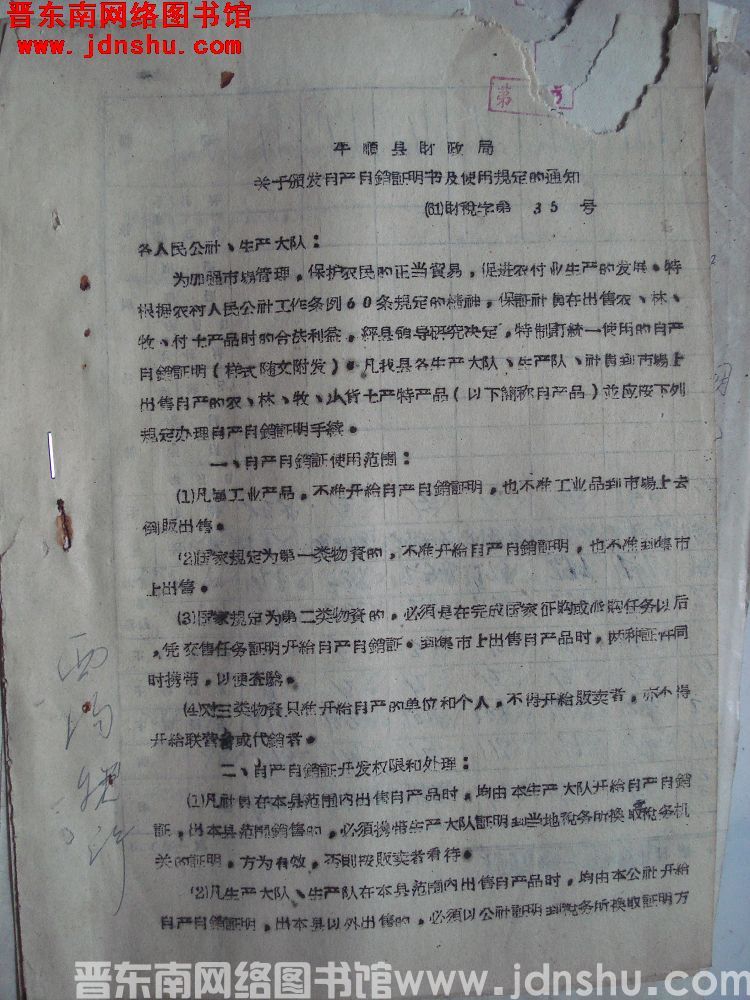 晋东南网络图书馆
www.jdnshu.com
第 号
平順县財政局
关于頒发自产自銷証明书及使用規定的通知
(61)財稅字第 35 号
各人民公社、生产大队：
为加强市場管理，保护农民的正当貿易，促进农付业生产的发展。特
根据农村人民公社工作条例60条規定的精神，保証社員在出售农、林、
牧、付土产品时的合法利益，經县領导研究决定，特制訂統一使用的自产
自銷証明（样式随文附发）。凡我县各生产大队、生产队、社員到市場上
出售自产的农、林、牧、山货土产特产品（以下簡称自产品）並应按下列
規定办理自产自銷証明手續。
一、自产自銷証使用范围：
(1)凡属工业产品，不准开給自产自銷証明，也不准工业品到市場上去
倒販出售。
(2)国家規定为第一类物資的，不准开給自产自銷証明，也不准到集市
上出售。
(3)国家規定为第二类物資的，必須是在完成国家征购或派购任务以后
，凭交售任务証明开給自产自銷証。到集市上出售自产品时，两种証件同
时携带，以便查驗。
(4)对三类物資只准开給自产的单位和个人，不得开給販卖者，亦不得
开給联营者或代銷者。
二、自产自銷証开发权限和处理：
(1)凡社員在本县范围内出售自产品时，均由本生产大队开給自产自銷
証，出本县范围銷售的，必須携带生产大队証明到当地稅务所換取稅务机
关的証明，方为有效，否則按販卖者看待。
(2)凡生产大队、生产队在本县范围内出售自产品时，均由本公社开給
自产自銷証明，出本县以外出售的，必須以公社証明到稅务所換取証明方
晋东南网络图书馆 www.jdnshu.com